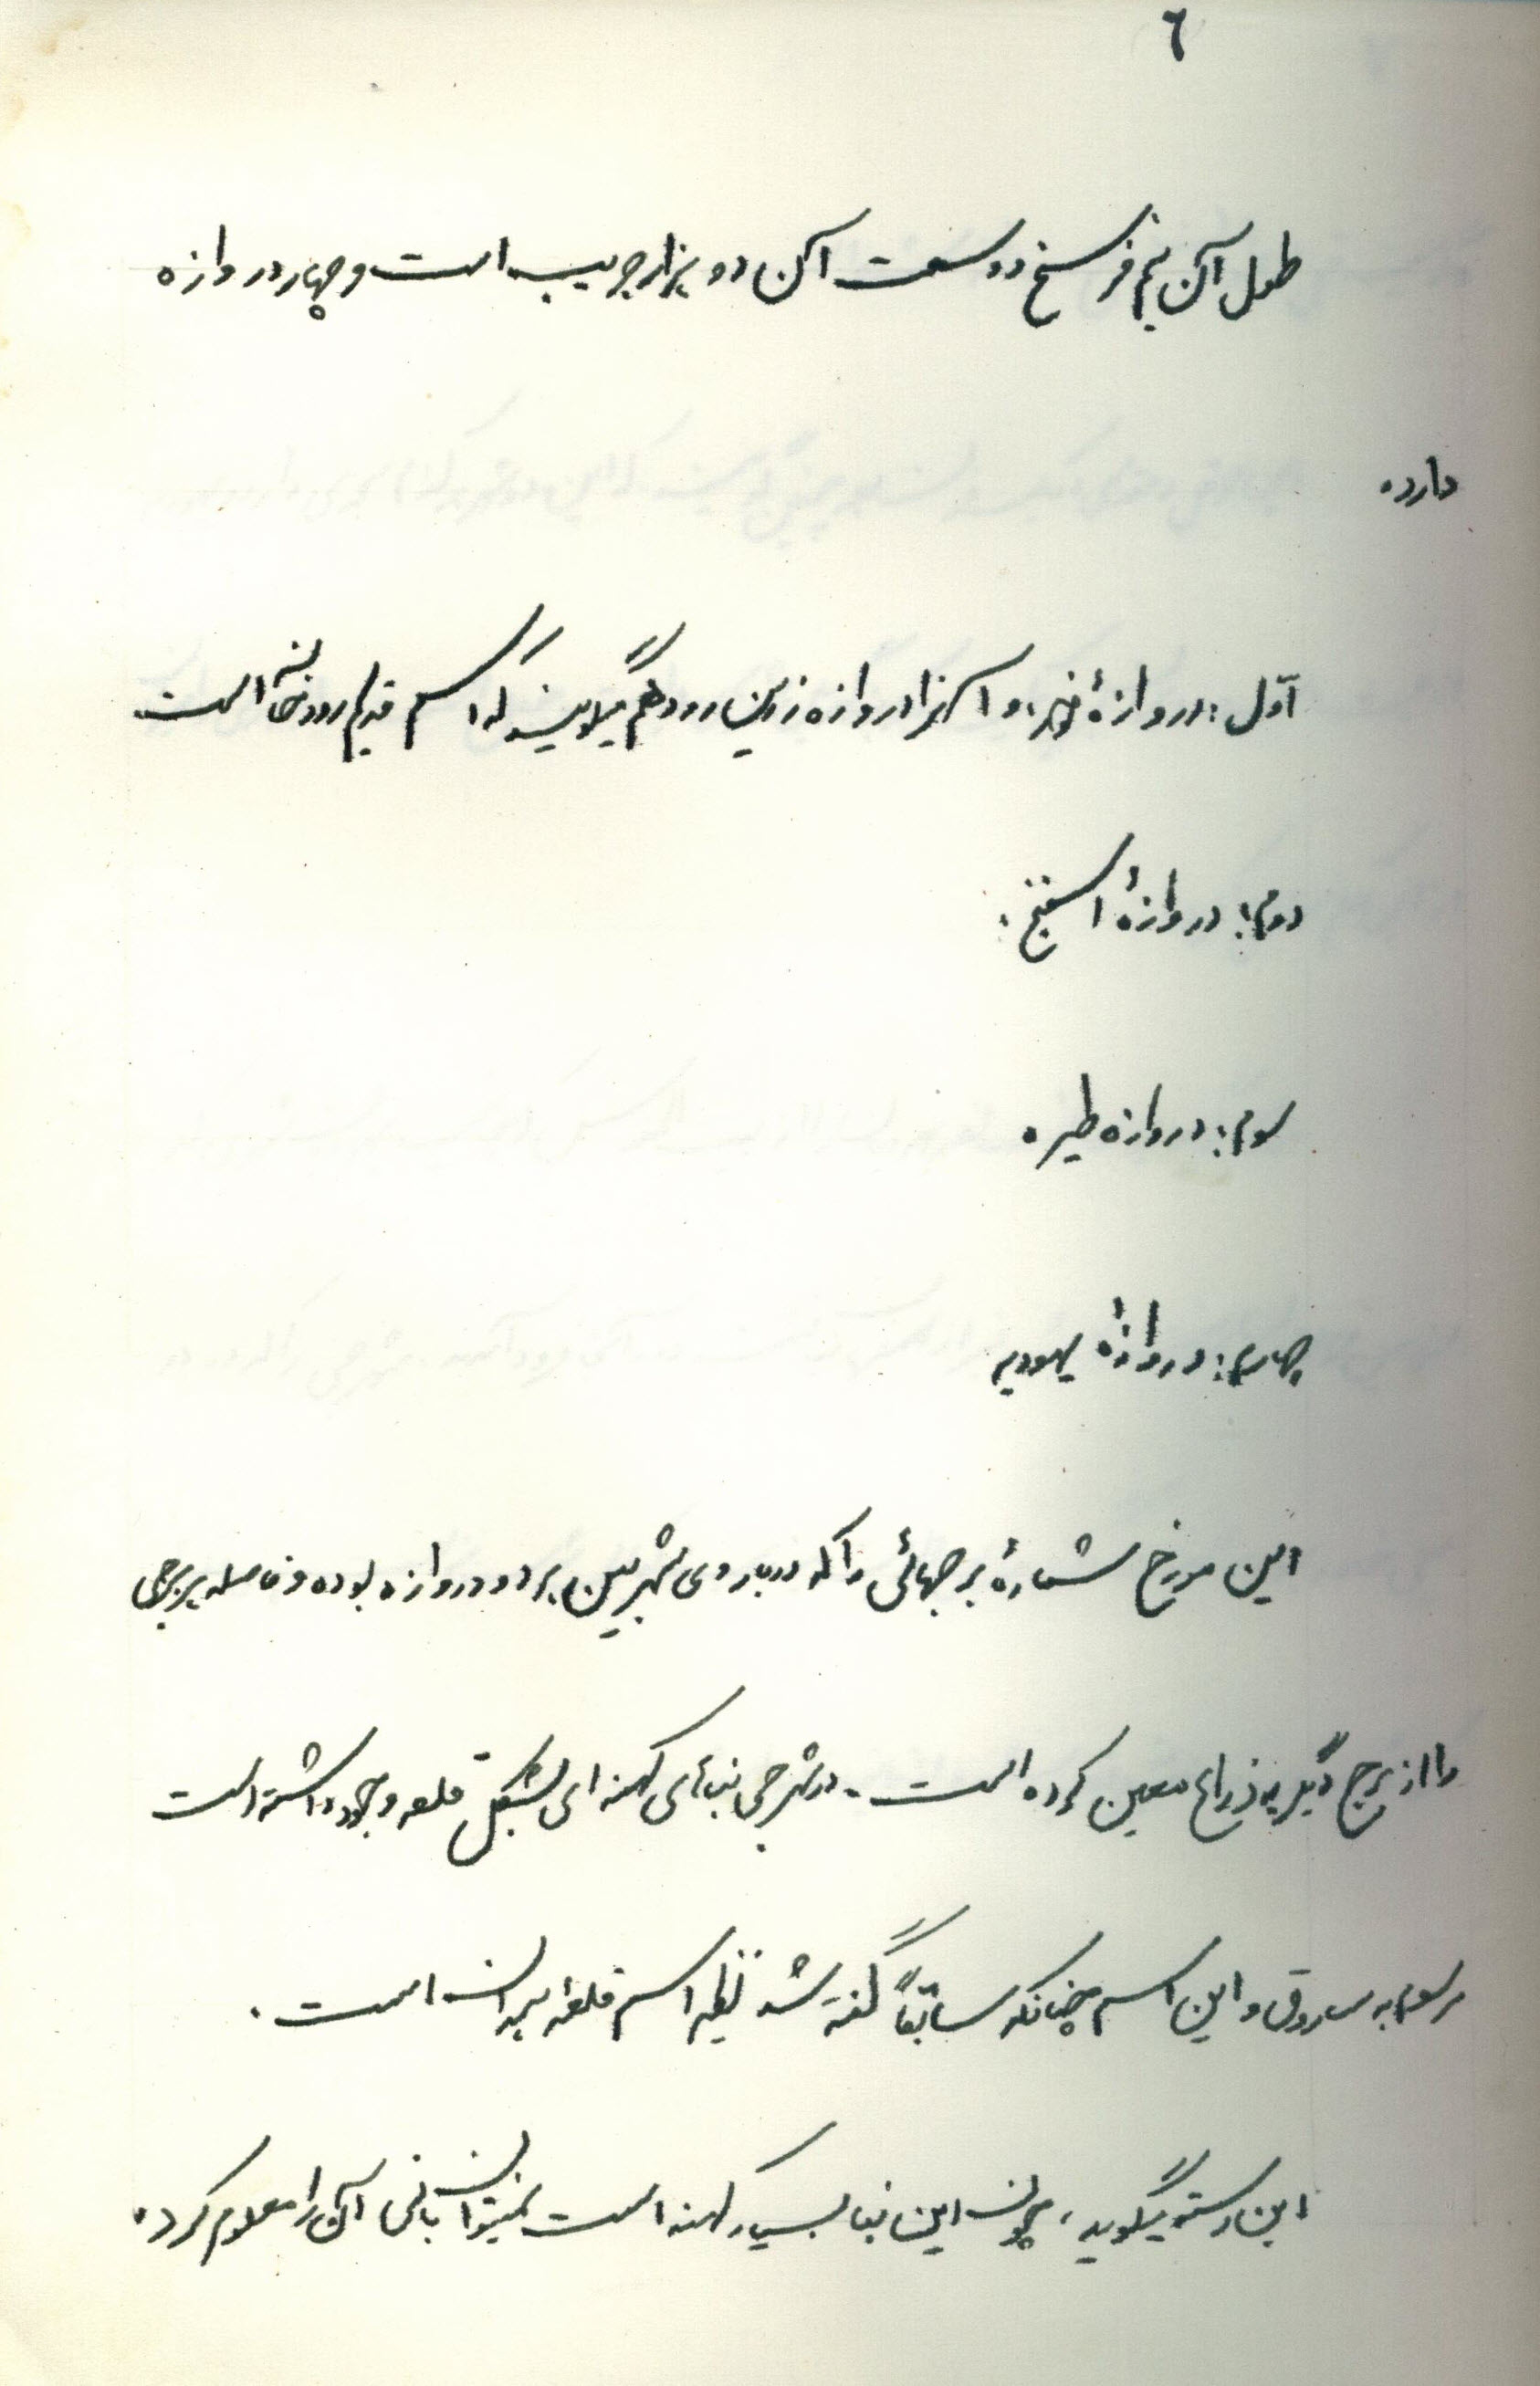 ٦
طول آن نیم فرسخ و وسعت آن دو هزار جریب است و چهار دروازه
دارد.
اول: دروازهٔ خور، و آنرا دروازه زرین رود هم میگویند که اسم قدیم رودخانه است
دوم: دروازهٔ اسفنج.
سوم: دروازه طیره
چهارم: دروازهٔ یهودیه
این مورخ شمارهٔ برجهائی را که در باروی شهر بین هر دو دروازه بوده و فاصله هر برجی
را از برج دیگر به ذراع معین کرده است. در شهر جی بنای کهنه‌ای بشکل قلعه وجود داشته است
مرسوم به ساروق و این اسم چنانکه سابقاً گفته شد اسم قلعه همدان است.
ابن رسته میگوید، چون این بنا بسیار کهنه است نمیتوان بانی آن را معلوم کرد.